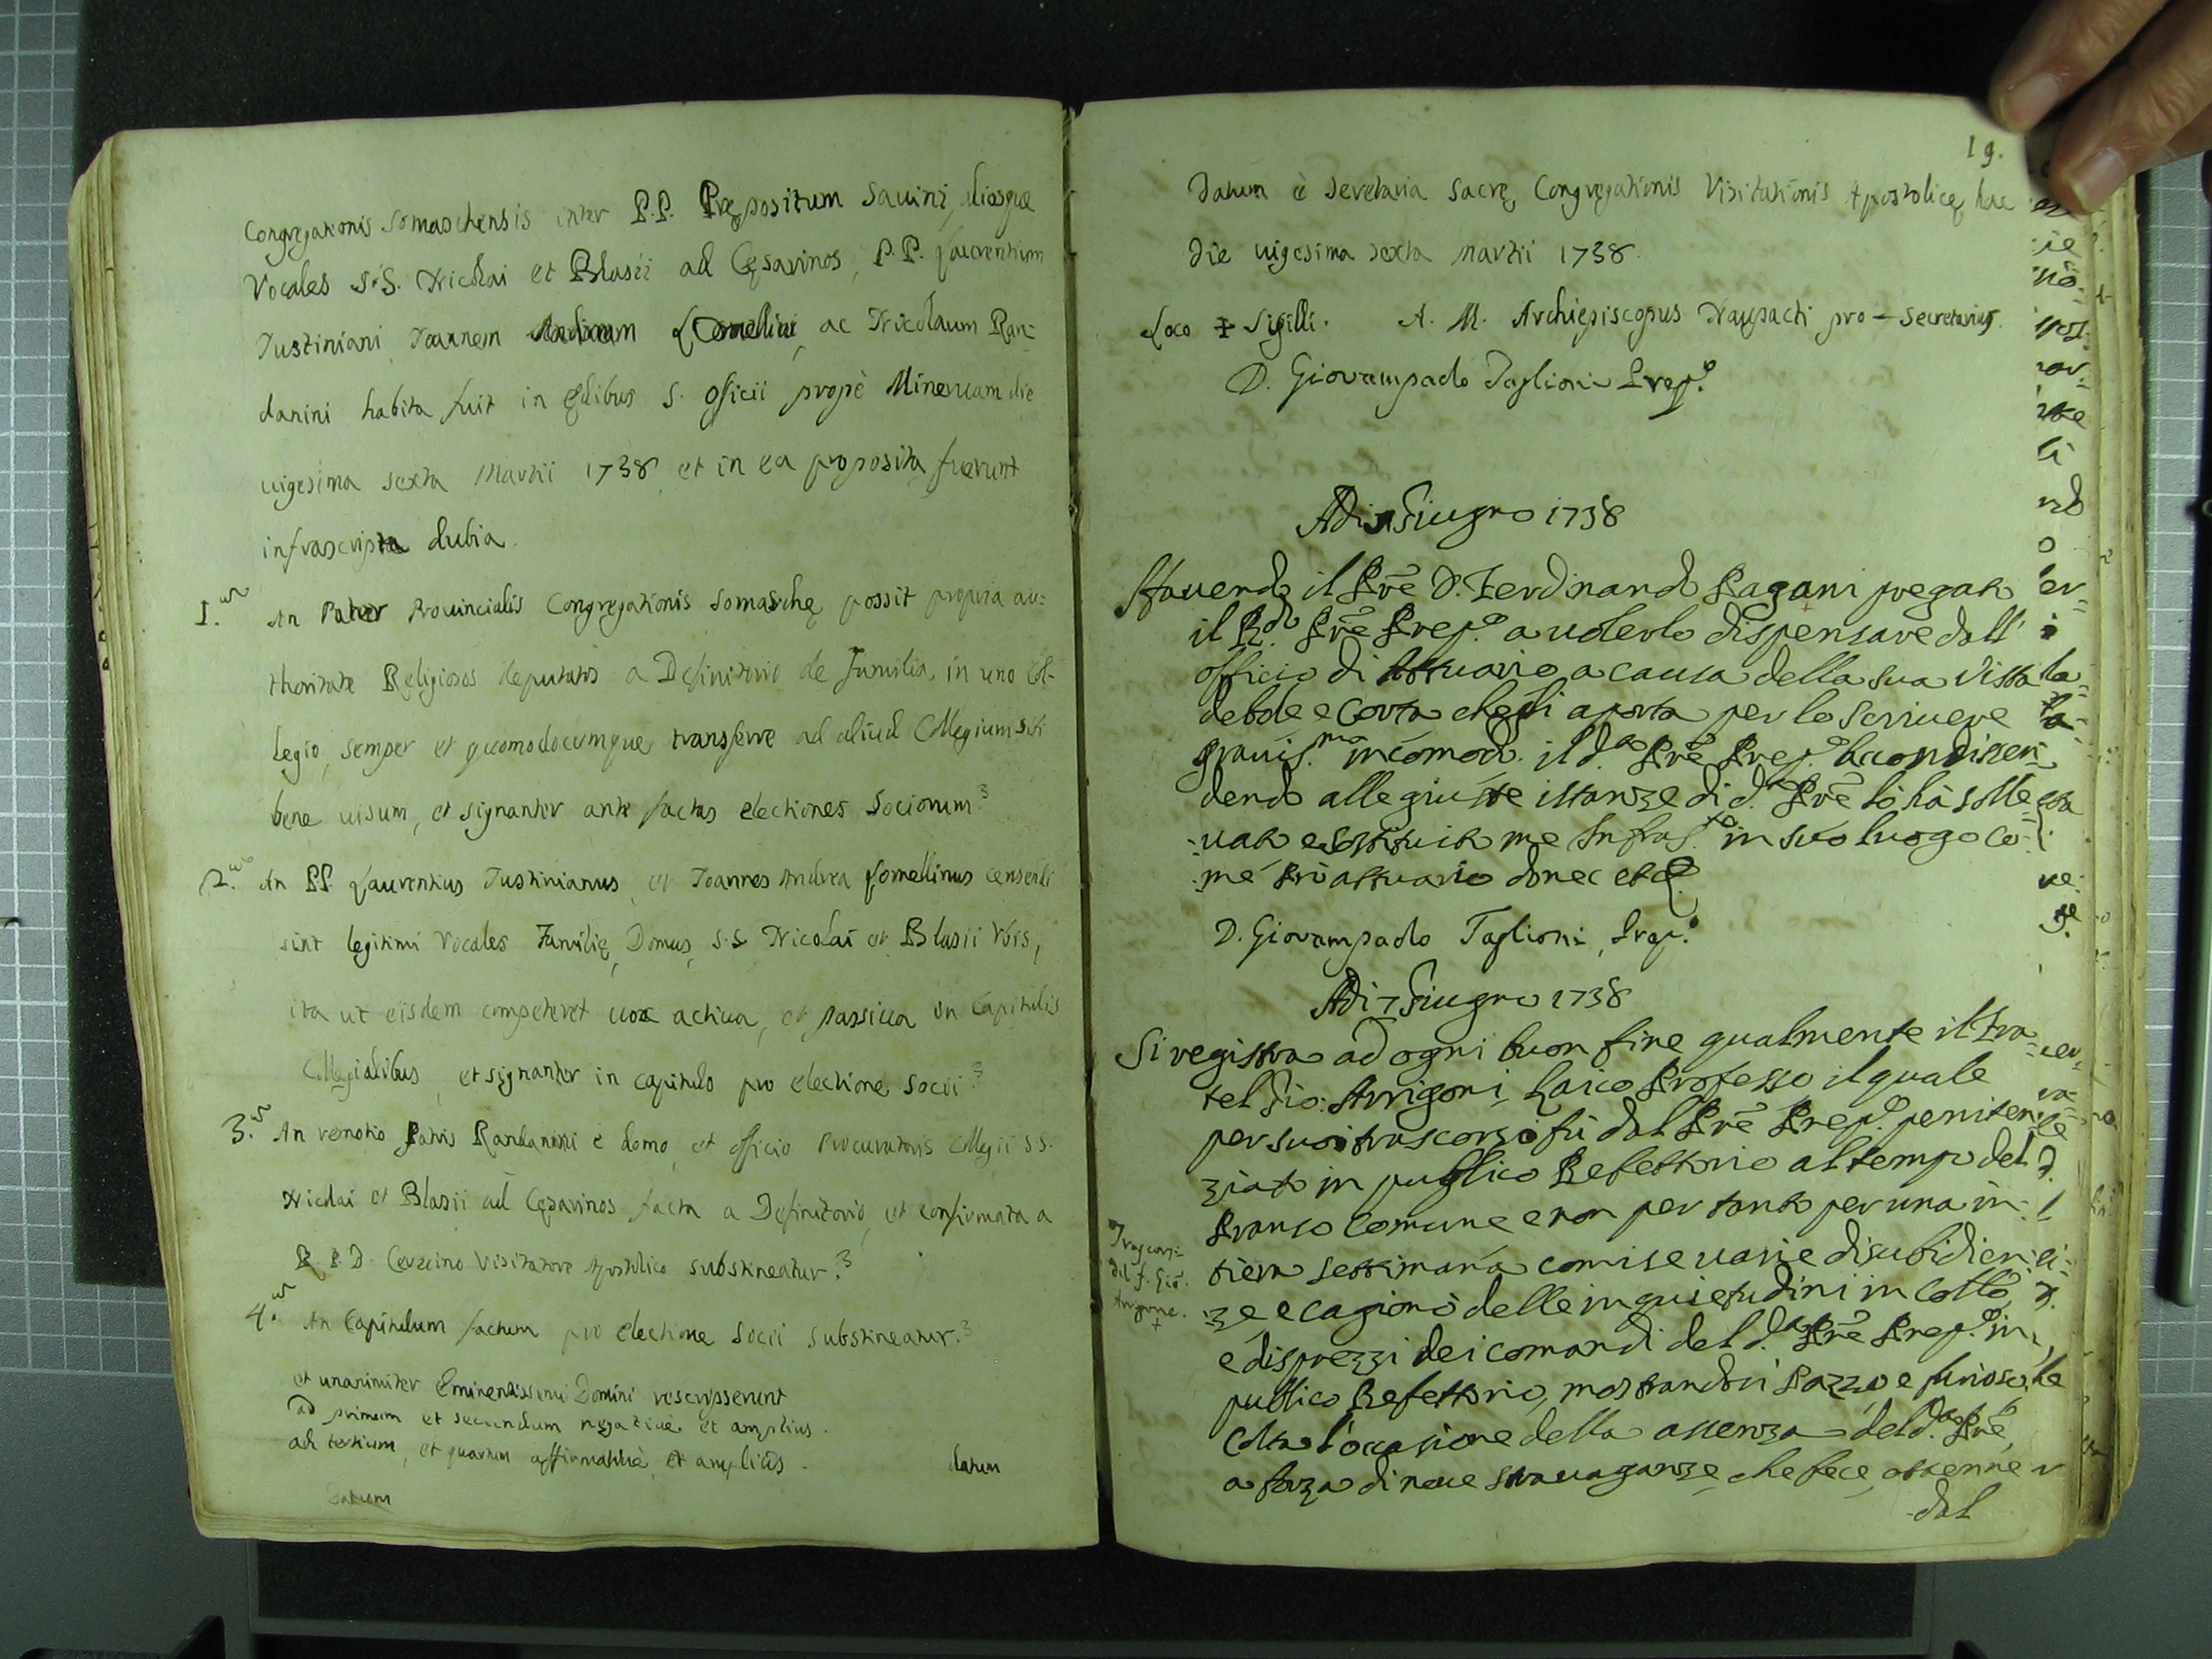 Congregationis Somaschensis inter P.P. Prępositum Sauini, aliosque
Vocales S.S. Nicolai et Blasii ad Cęsarinos, P.P. Laurentium
Justiniani, Joannem Andream Lomellini, ac Nicolaum Ran-
danini habita fuit in ędibus S. Officii propè Mineruam die
uigesima sexta Martii 1738, et in ea proposita fuerunt
infrascripta dubia.
1.m An Pater Prouincialis Congregationis Somaschę possit propria au-
thoritate Religiosos deputatos a Definitorio de Familia in uno Col-
legio, semper et quomodocumque transferre ad aliud Collegium sibi
bene uisum, et signanter ante factas electiones Sociorum?
2.m An PP. Laurentius Justinianus, et Joannes Andrea Lomellinus censendi
sint legitimi Vocales Familię, Domus, S.S. Nicolai et Blasii Vrbis,
ita ut eisdem competeret uox actiua, et passiua in Capitulis
Collegialibus, et signanter in capitulo pro electione Socii?
3.m An remotio Patris Randanini è domo, et officio Procuratoris Collegii S.S.
Nicolai et Blasii ad Cęsarinos facta a Definitorio, et confirmata a
R.P.D. Ceruino Visitatore Apostolico substineatur?
4.m An Capitulum factum pro electione Socii substineatur?
et unanimiter Eminentissimi Domini rescripserunt
ad primum et secundum negatiuè et amplius.
ad tertium, et quartum affirmatiuè, et amplius.
datum
Datum
19.
Datum è Secretaria Sacrę Congregationis Visitationis Apostolicę hac
die uigesima sexta Martii 1738.
Loco + Sigilli. A. M. Archiepiscopus Naupacti pro-Secretarius.
D. Giovampaolo Taglioni Prep.o
Adi Giugno 1738
Hauendo il Prê D. Ferdinando Pagani pregato
il R.do Prê Prep.o a uolerlo dispensare dall'
officio di Attuario a causa della sua vista
debole e corta che li aporta per lo scriuere
grauis.mo incomodo. il d.o Prê Prep.o acondiscen-
dendo alle giuste istanze di d.o Prê lo hà solle-
-uato e sostituito me Infras.to in suo luogo co-
-me Prò attuario donec et c.
D. Giovampaolo Taglioni, Prep.o
Adi 7 Giugno 1738
Si registra ad ogni buon fine qualmente il Fra-
tel Gio: Arrigoni Laico Professo il quale
per suoi trascorsi fù dal Prê Prep.o peniten-
ziato in publico Refettorio al tempo del
Pranso comune e non per tanto per una in-
tiera settimana comise uarie disubidien-
-ze e cagionò delle inquietudini in Coll.o,
e disprezzi dei comandi del d.o Prê Prep.o in
publico Refettorio, mostrandosi Pazzo, e furioso,
Colta l'occasione della assenza del d.o Prê,
a forza di noue strauaganze che fece, ottenne
dal
Trascorsi
del f. Gio.
Arigone.
+